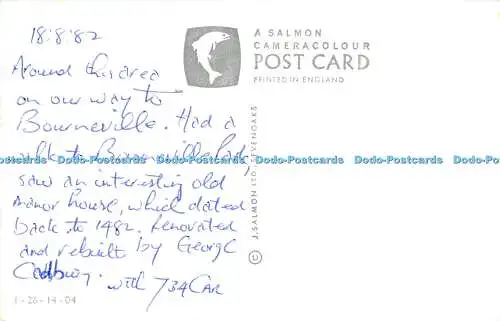 18:8:82
Around this area
on our way to
Bourneville. Had a
walk to Bourneville
saw an interesting old
manor house, which dated
back to 1482. Renovated
and rebuilt by George
Cadbury. with 734 CAR
1-26-14-04
A SALMON
CAMERACOLOUR
POST CARD
PRINTED IN ENGLAND
© J. SALMON LTD., SEVENOAKS
Dodo-Postcards Dodo-Postcards Dodo-Postcards Dodo-Postcards Dodo-Postcards Dodo-Postcards Dodo-Postcards